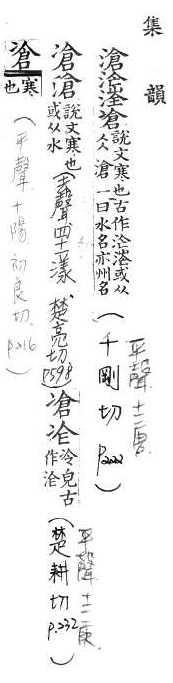 集韻
滄㳗洤𠗂說文寒也古作㳗洤或从仌滄一曰水名亦州名（千剛切 P.222）平聲十一唐
凔滄說文寒也或从水（去聲四十一漾 楚亮切 P.598）凔仺冷皃古作仺（楚耕切 P.232）平聲十三庚
凔寒也（平聲十陽初良切 P.216）